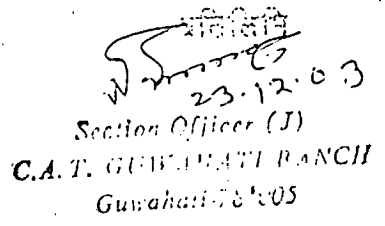 23.12.03
Section Officer (J)
C.A.T. GUWAHATI BANCH
Guwahati-781005